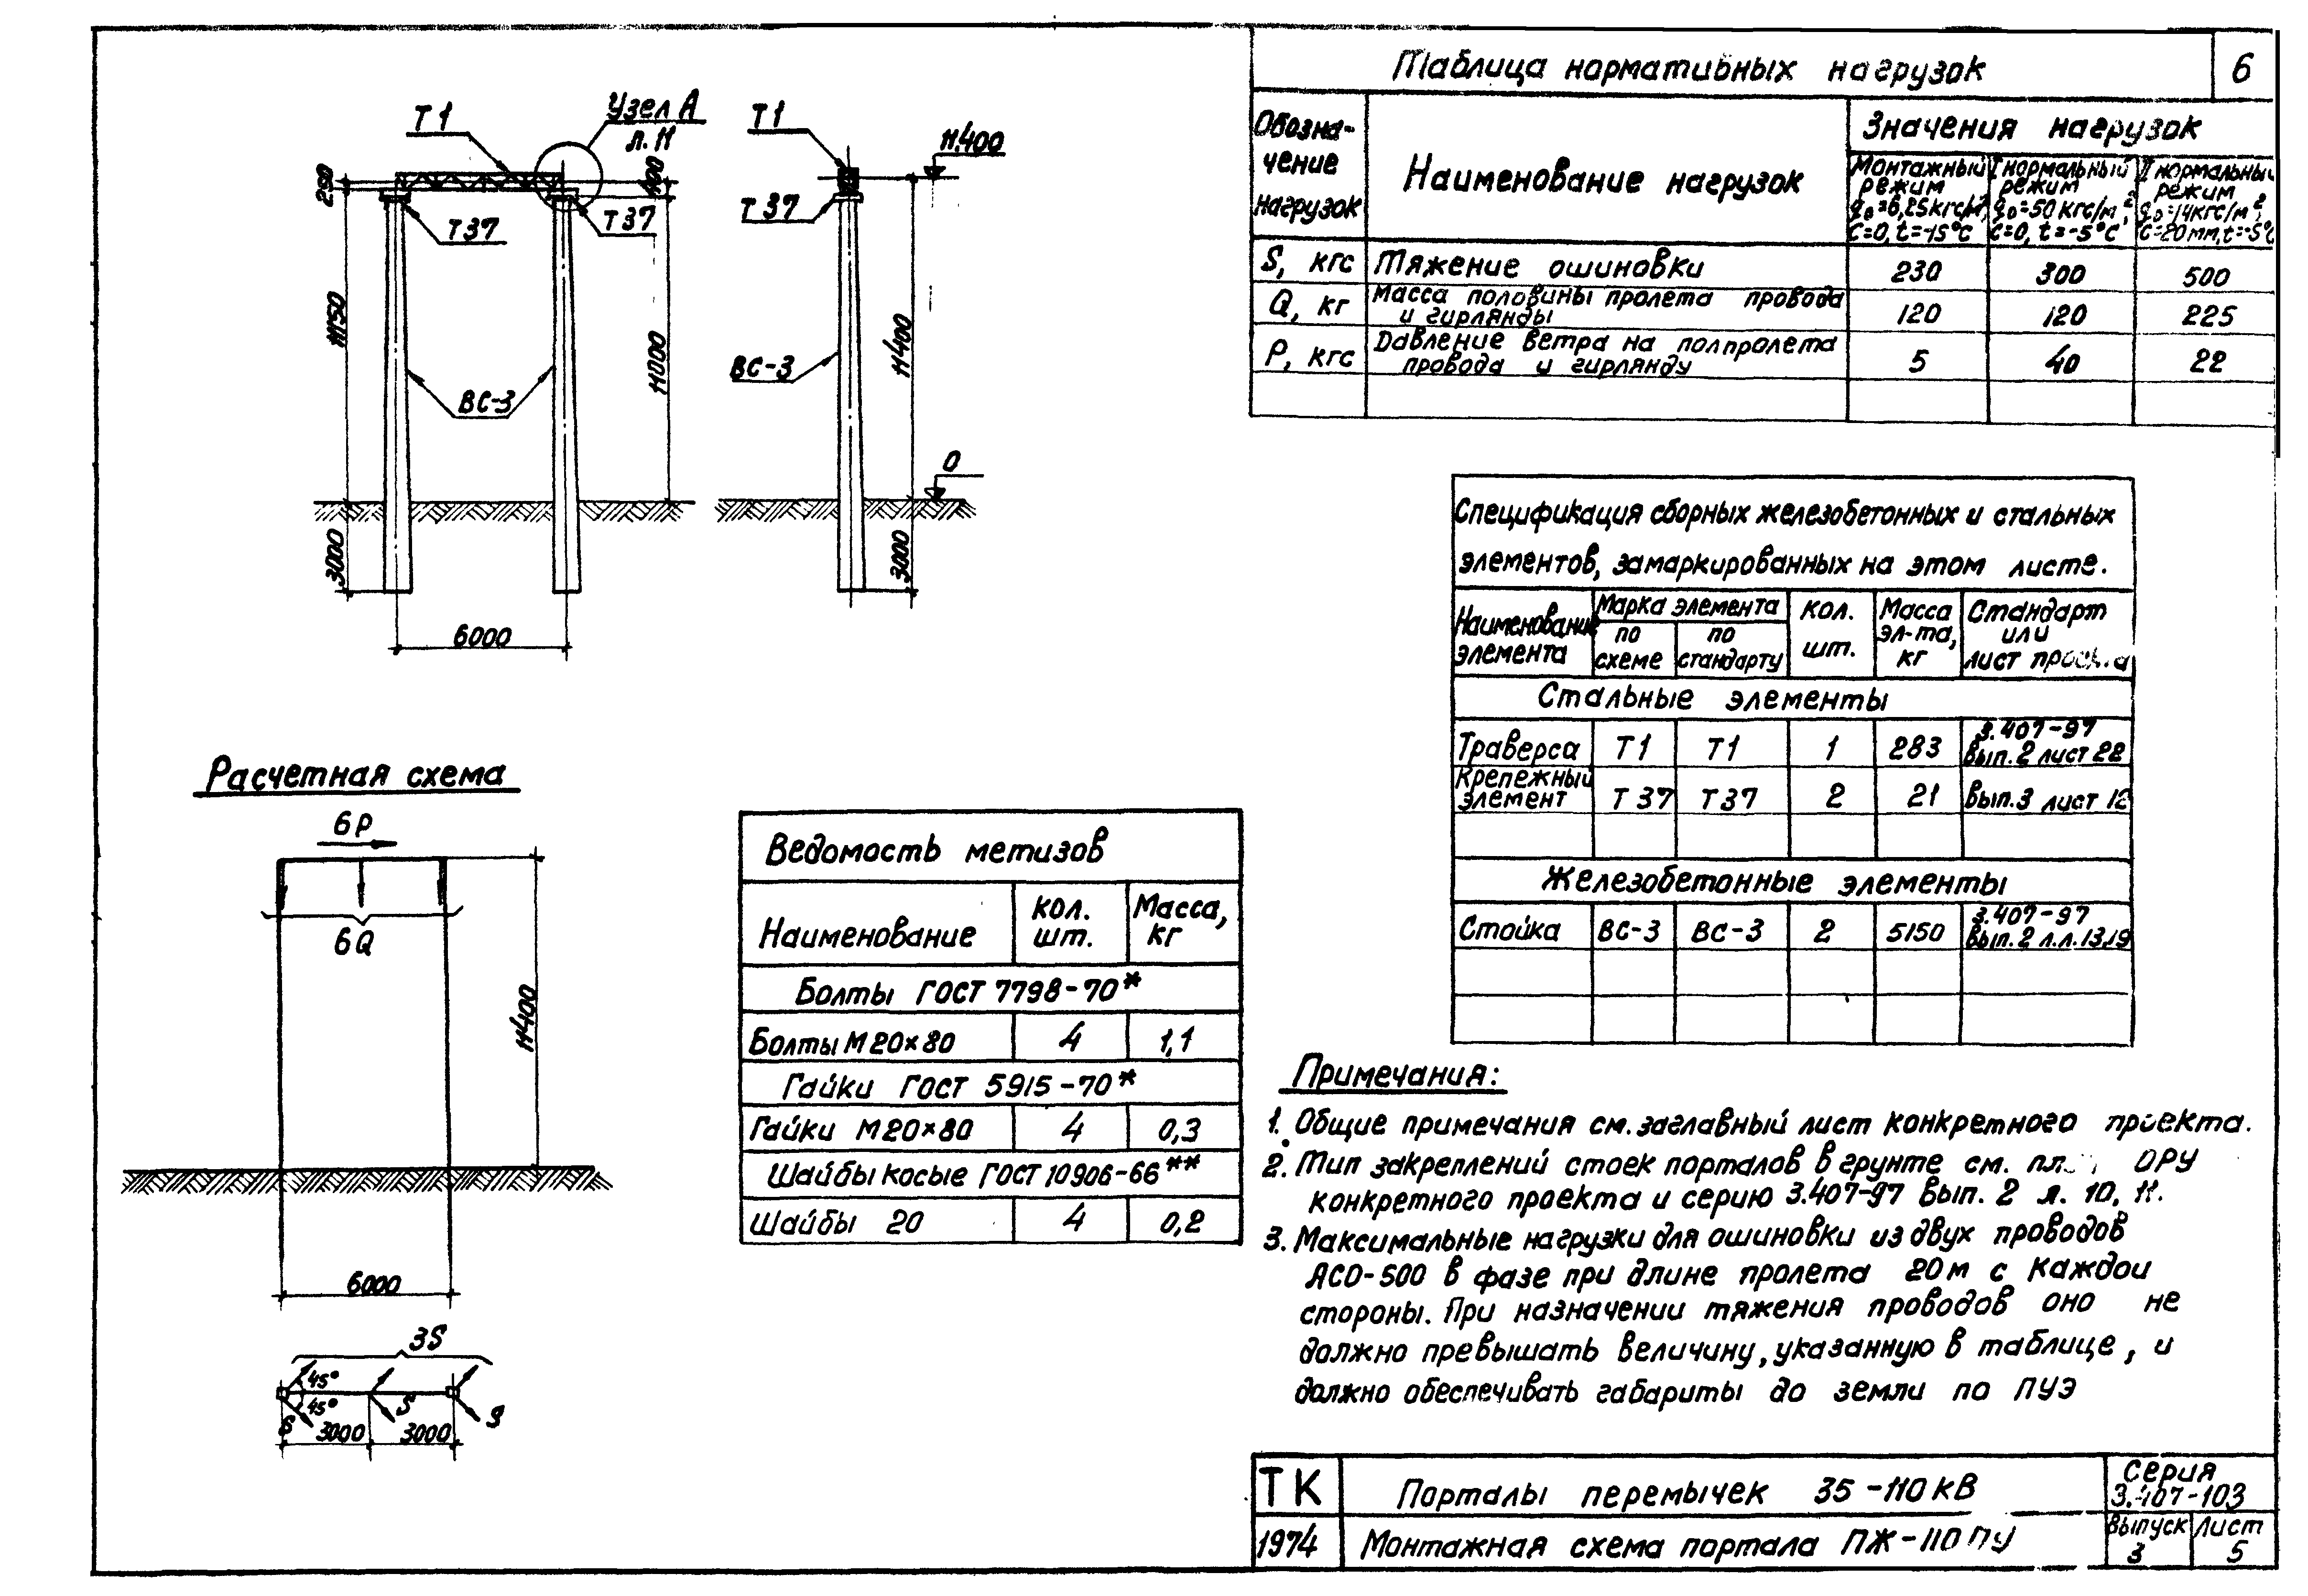 Таблица нормативных нагрузок
6
Обозначение нагрузок
Наименование нагрузок
Значения нагрузок
Монтажный режим q₀=6,25кгс/м², С=0, t=-15°С
I нормальный режим q₀=50 кгс/м², С=0, t=-5°С
II нормальный режим q₀=14кгс/м², С=20мм, t=-5°С
S, кгс Тяжение ошиновки 230 300 500
Q, кг Масса половины пролета провода и гирлянды 120 120 225
P, кгс Давление ветра на полпролета провода и гирлянду 5 40 22
Т1
Узел А
л. 11
250
400
Т37
Т37
11150
ВС-3
11000
3000
6000
Т1
11.400
Т37
ВС-3
11400
0
3000
Спецификация сборных железобетонных и стальных
элементов, замаркированных на этом листе.
Наименование элемента
Марка элемента
по схеме
по стандарту
Кол. шт.
Масса эл-та, кг
Стандарт или лист проекта
Стальные элементы
Траверса Т1 Т1 1 283 3.407-97 Вып. 2 лист 22
Крепежный элемент Т37 Т37 2 21 Вып.3 лист 12
Железобетонные элементы
Стойка ВС-3 ВС-3 2 5150 3.407-97 Вып. 2 л.л. 13,19
Расчетная схема
6P
6Q
11400
6000
3S
45°
45°
S
S
S
3000
3000
Ведомость метизов
Наименование
Кол. шт.
Масса, кг
Болты ГОСТ 7798-70*
Болты М20×80 4 1,1
Гайки ГОСТ 5915-70*
Гайки М20×80 4 0,3
Шайбы косые ГОСТ 10906-66**
Шайбы 20 4 0,2
Примечания:
1. Общие примечания см. заглавный лист конкретного проекта.
2. Тип закреплений стоек порталов в грунте см. ОРУ
конкретного проекта и серию 3.407-97 Вып. 2 л. 10, 11.
3. Максимальные нагрузки для ошиновки из двух проводов
АСО-500 в фазе при длине пролета 20м с каждой
стороны. При назначении тяжения проводов оно не
должно превышать величину, указанную в таблице, и
должно обеспечивать габариты до земли по ПУЭ
ТК
1974
Порталы перемычек 35-110кВ
Монтажная схема портала ПЖ-110ПУ
Серия
3.407-103
Выпуск
3
Лист
5